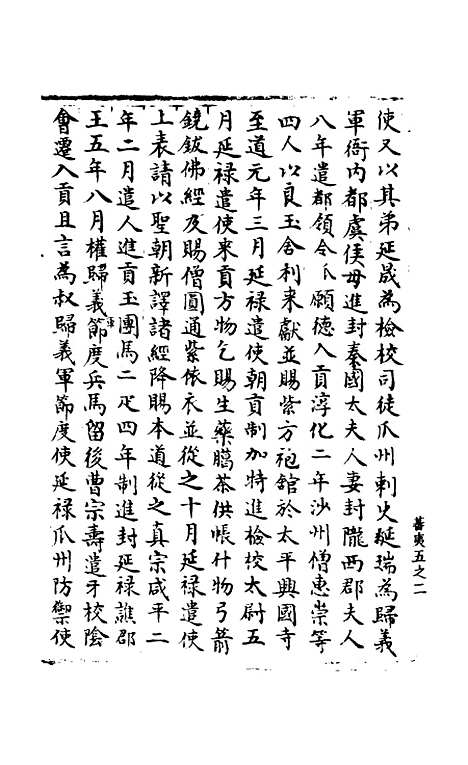 使又以其弟延晟為檢校司徒瓜州刺史延瑞為歸義
軍衙内都虞侯母進封秦國太夫人妻封隴西郡夫人
八年遣都領令𤓰願德入貢淳化二年沙州僧惠崇等
四人以良玉舍利來獻並賜紫方袍舘於太平興國寺
至道元年三月延禄遣使朝貢制加特進檢校太尉五
月延禄遣使來貢方物乞賜生藥臈茶供帳什物弓箭
鐃鈸佛經及賜僧圓通紫依衣並從之十月延禄遣使
上表請以聖朝新譯諸經降賜本道從之真宗咸平二
年二月遣人進貢玉團馬二疋四年制進封延禄譙郡
王五年八月權歸義軍節度兵馬留後曹宗壽遣牙校陰
會遷入貢且言為叔歸義軍節度使延禄瓜州防禦使
蕃夷五之二